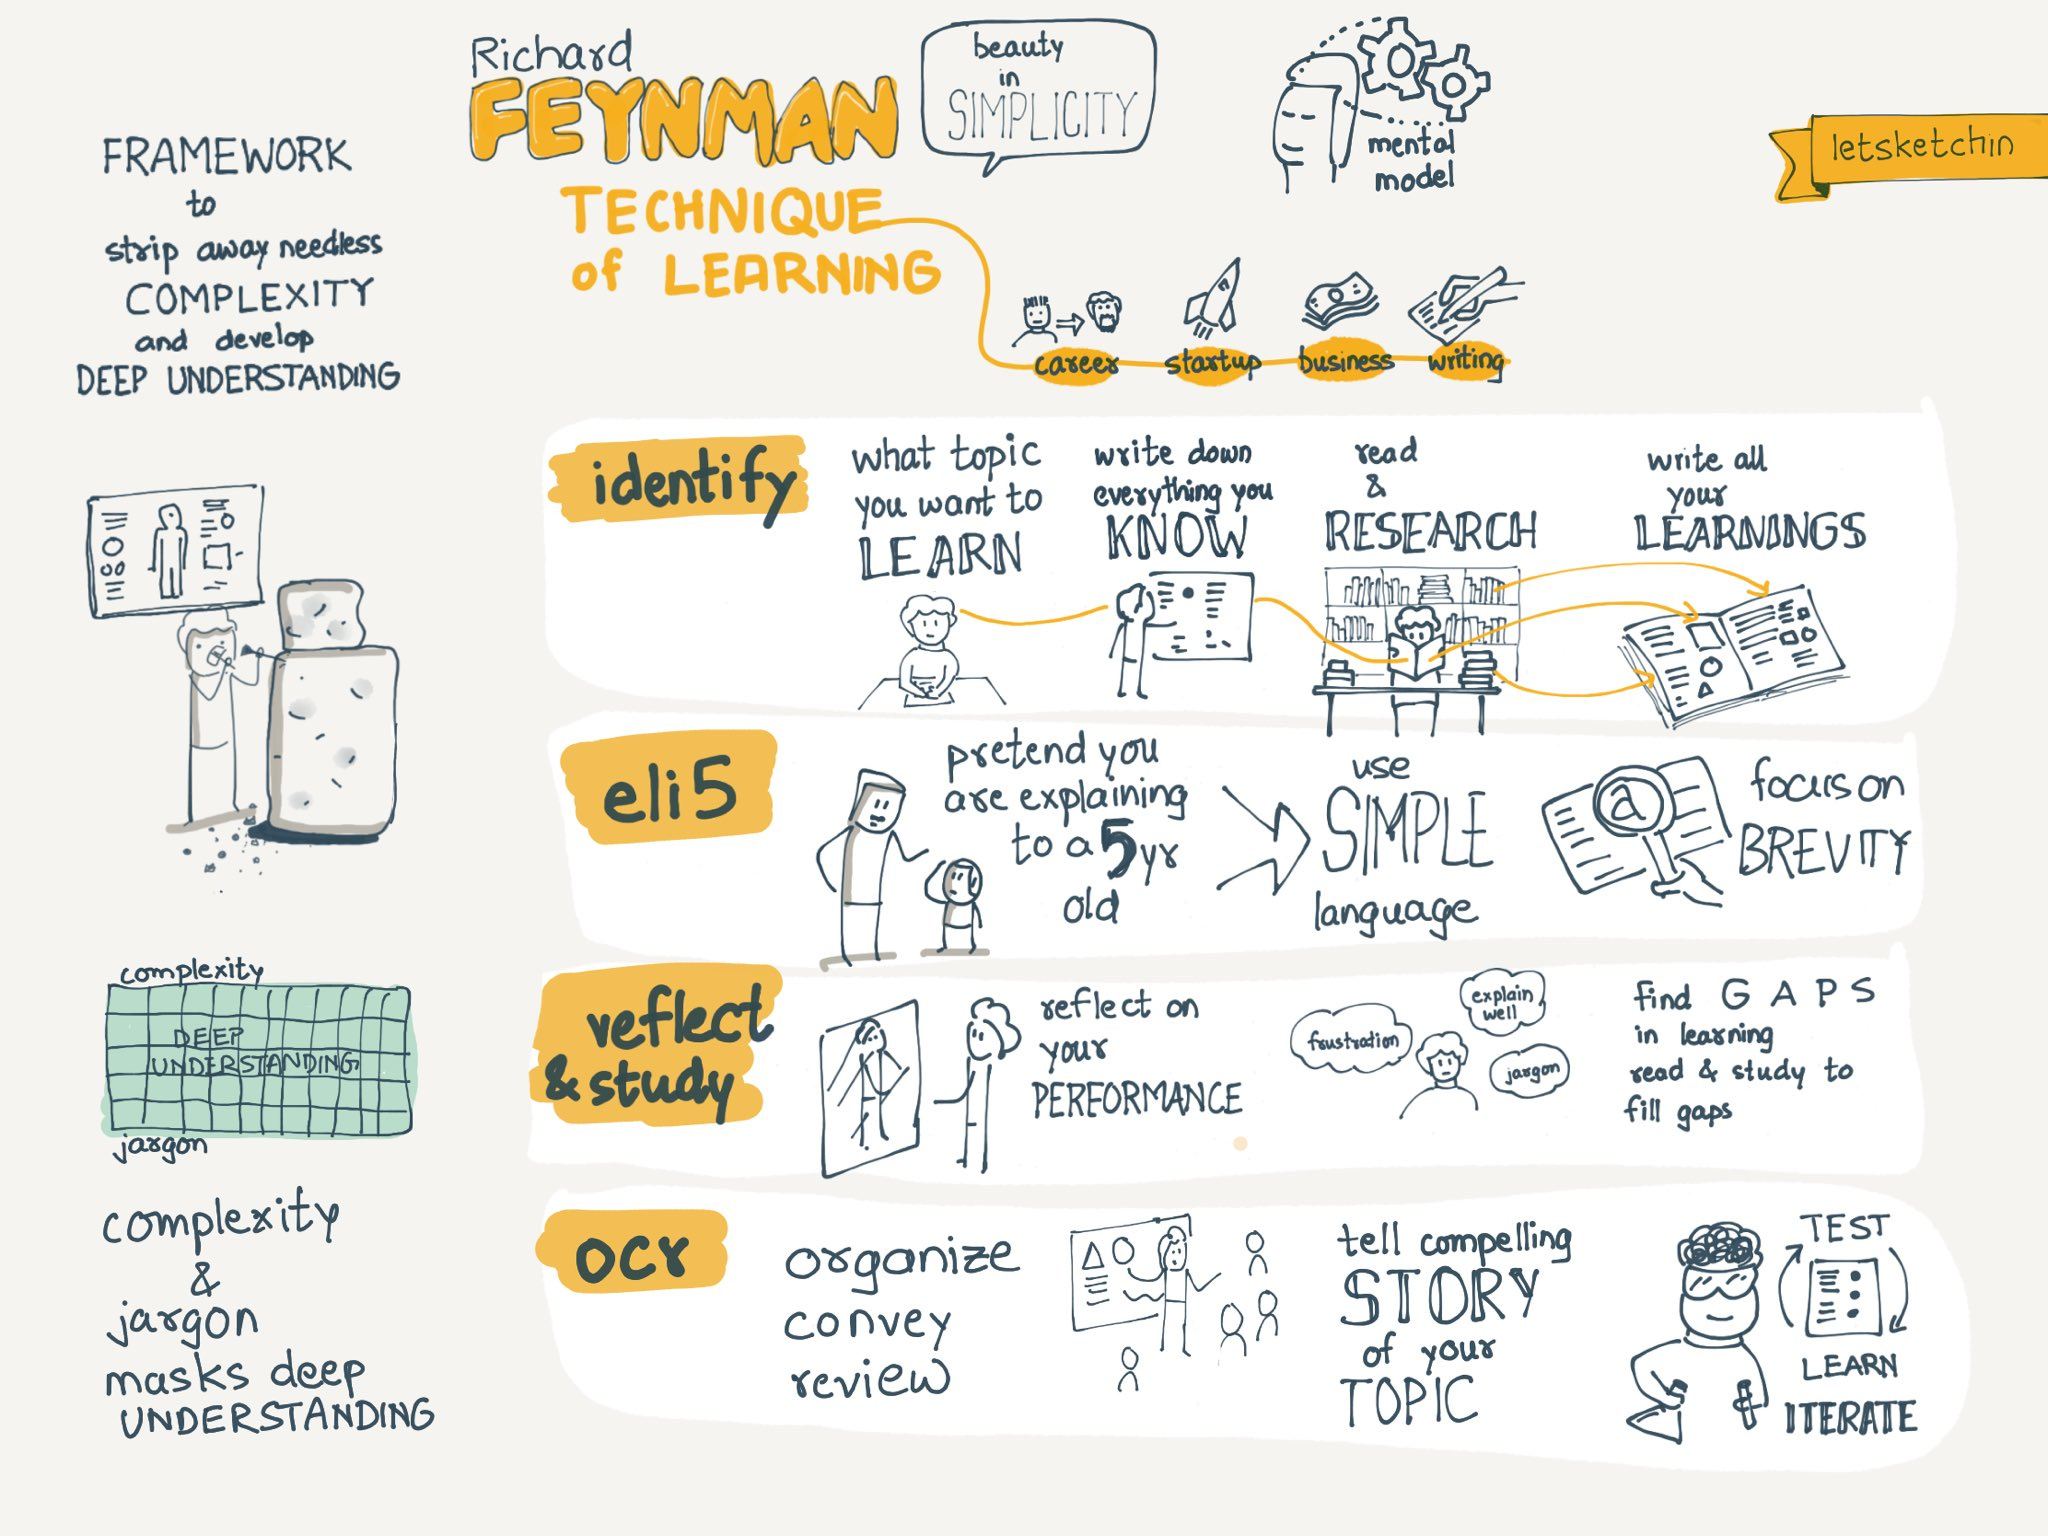 Richard
FEYNMAN
TECHNIQUE
of LEARNING
beauty
in
SIMPLICITY
mental
model
letsketchin
career
startup
business
writing
FRAMEWORK
to
strip away needless
COMPLEXITY
and develop
DEEP UNDERSTANDING
complexity
DEEP
UNDERSTANDING
jargon
complexity
&
jargon
masks deep
UNDERSTANDING
identify
what topic
you want to
LEARN
write down
everything you
KNOW
read
&
RESEARCH
write all
your
LEARNINGS
eli5
pretend you
are explaining
to a 5 yr
old
use
SIMPLE
language
a
focus on
BREVITY
reflect
& study
reflect on
your
PERFORMANCE
frustration
explain
well
jargon
find GAPS
in learning
read & study to
fill gaps
ocr
organize
convey
review
tell compelling
STORY
of your
TOPIC
TEST
LEARN
ITERATE